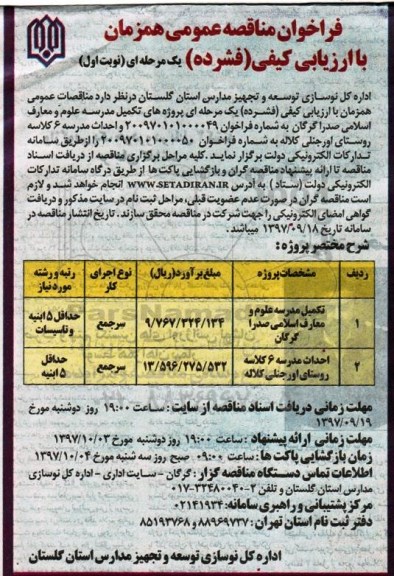 فراخوان مناقصه عمومی همزمان
با ارزیابی کیفی (فشرده) یک مرحله ای (نوبت اول)
اداره کل نوسازی توسعه و تجهیز مدارس استان گلستان درنظر دارد مناقصات عمومی
همزمان با ارزیابی کیفی (فشرده) یک مرحله ای پروژه های تکمیل مدرسه علوم و معارف
اسلامی صدرا گرگان به شماره فراخوان ۲۰۰۹۷۰۱۰۱۰۰۰۰۴۹ و احداث مدرسه ۶ کلاسه
روستای اورجنلی کلاله به شماره فراخوان ۲۰۰۹۷۰۱۰۱۰۰۰۰۵۰ را ازطریق سامانه
تدارکات الکترونیکی دولت برگزار نماید. کلیه مراحل برگزاری مناقصه از دریافت اسناد
مناقصه تا ارائه پیشنهاد مناقصه گران و بازگشایی پاکت ها از طریق درگاه سامانه تدارکات
الکترونیکی دولت (ستاد) به آدرس WWW.SETADIRAN.IR انجام خواهد شد و لازم
است مناقصه گران در صورت عدم عضویت قبلی، مراحل ثبت نام در سایت مذکور و دریافت
گواهی امضای الکترونیکی را جهت شرکت در مناقصه محقق سازند. تاریخ انتشار مناقصه در
سامانه تاریخ ۱۳۹۷/۰۹/۱۸ میباشد.
شرح مختصر پروژه:
ردیف مشخصات پروژه مبلغ برآورد (ریال) نوع اجرای کار رتبه و رشته مورد نیاز
۱ تکمیل مدرسه علوم و معارف اسلامی صدرا گرگان ۹/۷۶۷/۳۲۴/۱۳۴ سرجمع حداقل ۵ ابنیه و تاسیسات
۲ احداث مدرسه ۶ کلاسه روستای اورجنلی کلاله ۱۳/۵۹۶/۲۷۵/۵۳۲ سرجمع حداقل ۵ ابنیه
مهلت زمانی دریافت اسناد مناقصه از سایت: ساعت ۱۹:۰۰ روز دوشنبه مورخ
۱۳۹۷/۰۹/۱۹
مهلت زمانی ارائه پیشنهاد: ساعت ۱۹:۰۰ روز دوشنبه مورخ ۱۳۹۷/۱۰/۰۳
زمان بازگشایی پاکت ها: ساعت ۰۹:۰۰ صبح روز سه شنبه مورخ ۱۳۹۷/۱۰/۰۴
اطلاعات تماس دستگاه مناقصه گزار: گرگان - سایت اداری - اداره کل نوسازی
مدارس استان گلستان و تلفن ۲-۳۳۴۸۰۰۴۰-۰۱۷
مرکز پشتیبانی و راهبری سامانه: ۰۲۱۴۱۹۳۴
دفتر ثبت نام استان تهران: ۸۸۹۶۹۷۳۷ و ۸۵۱۹۳۷۶۸
اداره کل نوسازی توسعه و تجهیز مدارس استان گلستان